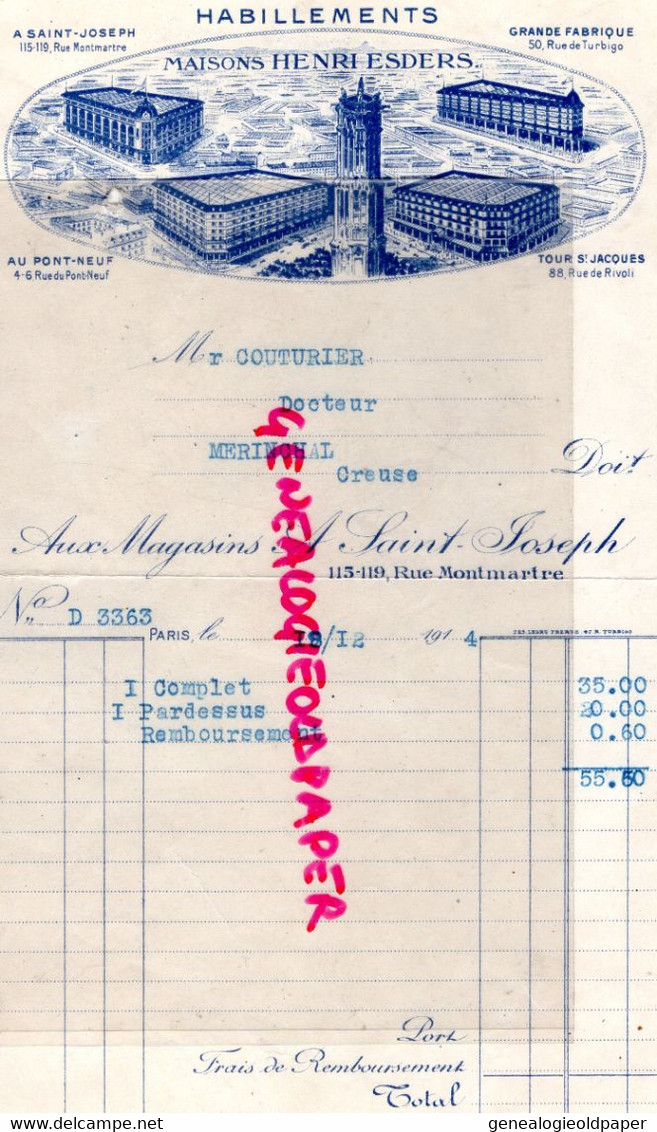 HABILLEMENTS
A SAINT-JOSEPH
115-119, Rue Montmartre
GRANDE FABRIQUE
50, Rue de Turbigo
MAISONS HENRI ESDERS.
AU PONT-NEUF
4-6 Rue du Pont-Neuf
TOUR ST JACQUES
88, Rue de Rivoli
Mr COUTURIER
Docteur
MERINCHAL
Creuse
Doit
Aux Magasins A Saint-Joseph
115-119, Rue Montmartre
No D 3363
PARIS, le 18/12 1914
I Complet 35.00
I Pardessus 20.00
Remboursement 0.60
55.60
GENEALOGIEOLDPAPER
Port
Frais de Remboursement
Total
genealogieoldpaper